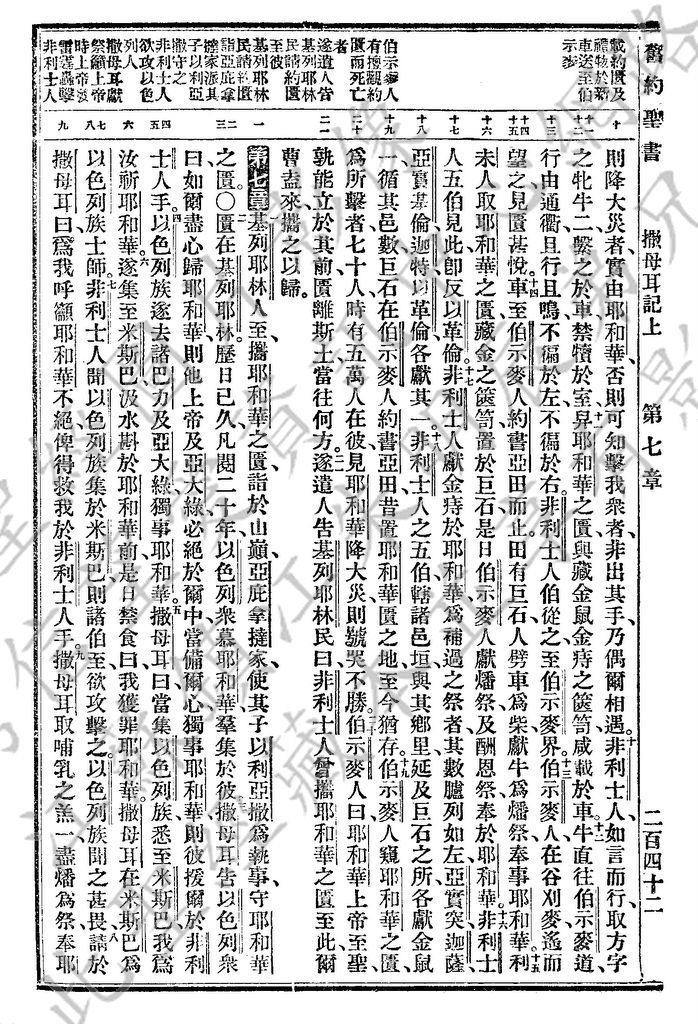 舊約聖書
撒母耳記上
第七章
二百四十二
載約匱及
禮物於新
車送至伯
示麥
伯示麥人
有擅觀約
匱而死亡
者
遂遣人告
基列耶林
民請約匱
至彼
基列耶林
民請約匱
詣亞庇拿
撻家派其
子以利亞
撒守之
非利士人
欲攻以色
列人
撒母耳獻
祭籲上帝
時上帝發
雷霆轟擊
非利士人
則降大災者實由耶和華否則可知擊我衆者非出其手乃偶爾相遇非利士人如言而行取方字
之牝牛二繫之於車禁犢於室舁耶和華之匱與藏金鼠金痔之篋笥咸載於車牛直往伯示麥道
行由通衢且行且鳴不徧於左不徧於右非利士人伯從之至伯示麥界伯示麥人在谷刈麥遙而
望之見匱甚悅車至伯示麥人約書亞田而止田有巨石人劈車爲柴獻牛爲燔祭奉事耶和華利
未人取耶和華之匱藏金之篋笥置於巨石是日伯示麥人獻燔祭及酬恩祭奉於耶和華非利士
人五伯見此卽反以革倫非利士人獻金痔於耶和華爲補過之祭者其數臚列如左亞實突迦薩
亞實基倫迦特以革倫各獻其一非利士人之五伯轄諸邑垣與其鄉里延及巨石之所各獻金鼠
一循其邑數巨石在伯示麥人約書亞田昔置耶和華匱之地至今猶存伯示麥人窺耶和華之匱
爲所擊者七十人時有五萬人在彼見耶和華降大災則號哭不勝伯示麥人曰耶和華上帝至聖
孰能立於其前匱離斯土當往何方遂遣人告基列耶林民曰非利士人曾攜耶和華之匱至此爾
曹盍來攜之以歸
第七章基列耶林人至攜耶和華之匱詣於山巔亞庇拿撻家使其子以利亞撒爲執事守耶和華
之匱〇匱在基列耶林歷日已久凡閱二十年以色列衆慕耶和華羣集於彼撒母耳告以色列衆
曰如爾盡心歸耶和華則他上帝及亞大綠必絕於爾中當備爾心獨事耶和華則彼援爾於非利
士人手以色列族遂去諸巴力及亞大綠獨事耶和華撒母耳曰當集以色列族悉至米斯巴我爲
汝祈耶和華遂集至米斯巴汲水斟於耶和華前是日禁食曰我獲罪耶和華撒母耳在米斯巴爲
以色列族士師非利士人聞以色列族集於米斯巴則諸伯至欲攻擊之以色列族聞之甚畏請於
撒母耳曰爲我呼籲耶和華不絕俾得救我於非利士人手撒母耳取哺乳之羔一盡燔爲祭奉耶